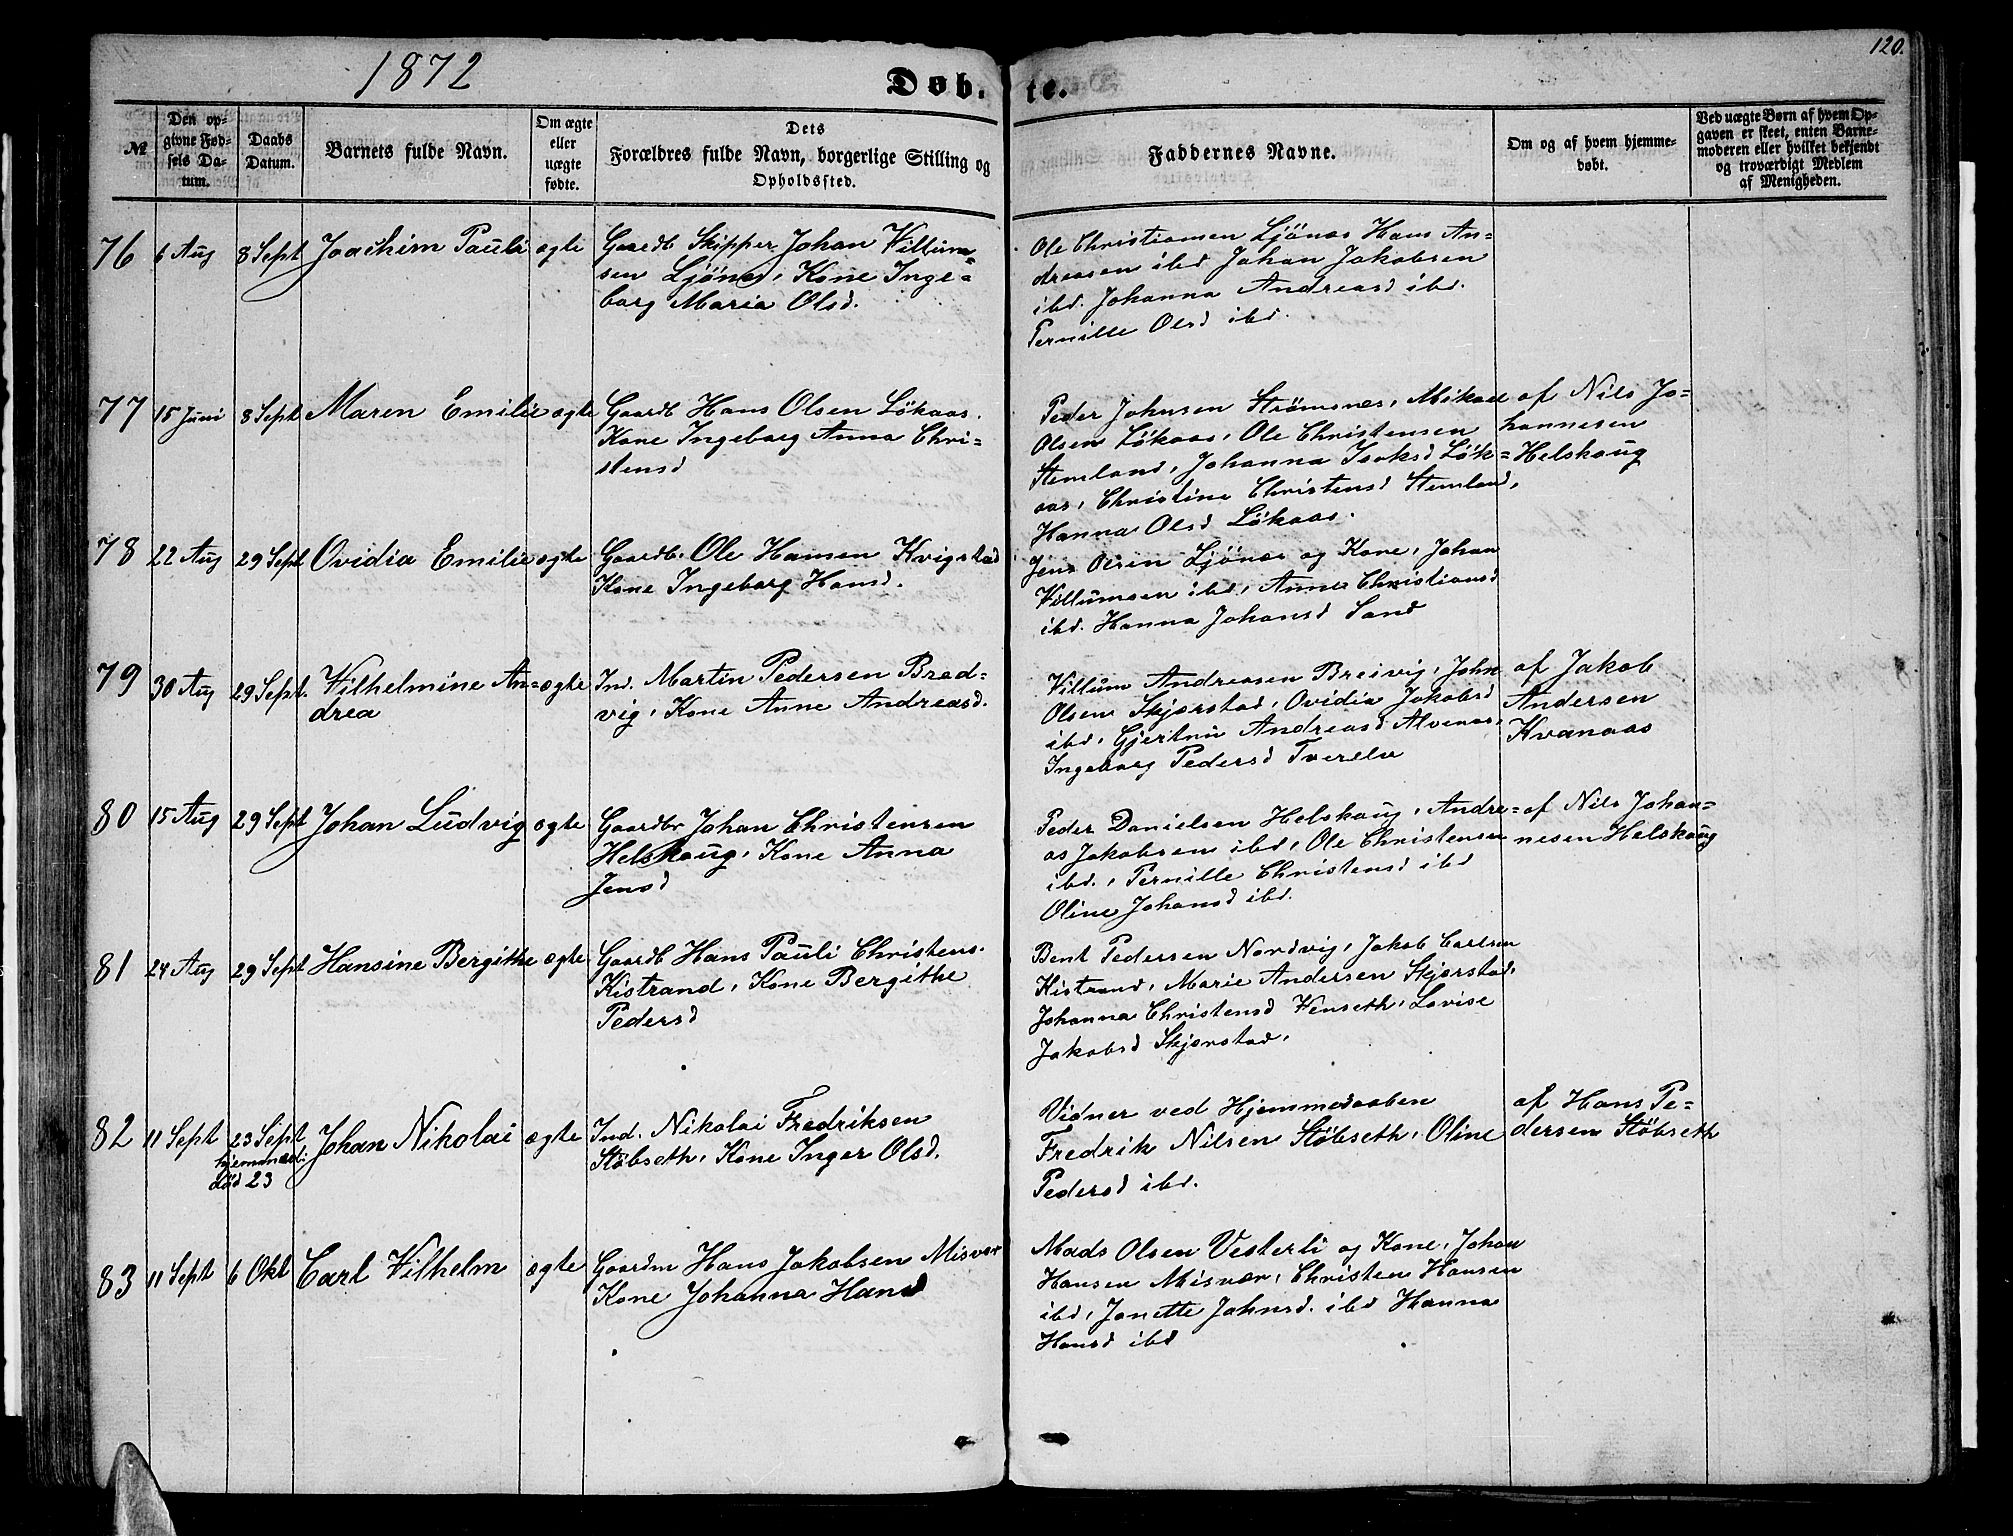 1872
Døb.
te.
120.
№
Den op-
givne Fød-
sels Da-
tum.
Daabs
Datum.
Barnets fulde Navn.
Om ægte
eller
uægte
fødte.
Dets
Forældres fulde Navn, borgerlige Stilling og
Opholdssted.
Faddernes Navne.
Om og af hvem hjemme-
døbt.
Ved uægte Børn af hvem Op-
gaven er skeet, enten Barne-
moderen eller hvilket bekjendt
og troværdigt Medlem
af Menigheden.
76
6 Aug
8 Sept
Joachim Pauli
ægte
Gaardb Skipper Johan Villum-
sen Ljönes, Kone Inge-
borg Maria Olsd.
Ole Christiansen Ljönes Hans An-
dreasen ibd Johan Jakobsen
ibd. Johanna Andreasd ibd.
Pernille Olsd ibd.
77
15 Juni
8 Sept
Maren Emilie
ægte
Gaardb Hans Olsen Lökaas.
Kone Ingeborg Anna Chri-
stensd
Peder Johnsen Strömsnes, Mikael
Olsen Lökaas, Ole Christensen
Stemland, Johanna Isaksd Lök-
aas, Christine Christensd Stemland,
Hanna Olsd Lökaas.
af Nils Jo-
hannesen
Helskaug
78
22 Aug
29 Sept
Ovidia Emilie
ægte
Gaardb. Ole Hansen Kvigstad
Kone Ingeborg Hansd.
Jens Olsen Ljönes og Kone, Johan
Villumsen ibd, Anne Christiansd
ibd. Hanna Johansd Sand
79
30 Aug
29 Sept.
Vilhelmine An-
drea
ægte
Ind. Martin Pedersen Bred-
vig, Kone Anne Andreasd.
Villum Andreasen Breivig, John
Olsen Skjerstad, Ovidia Jakobsd
ibd, Gjertru Andreasd Alvenes,
Ingeborg Pedersd Tverelv
af Jakob
Andersen
Kvanaas
80
15 Aug
29 Sept
Johan Ludvig
ægte
Gaardbr Johan Christensen
Helskaug, Kone Anna
Jensd
Peder Danielsen Helskaug, Andre-
as Jakobsen ibd, Ole Christensen
ibd., Pernille Christensd ibd
Oline Johansd ibd.
af Nils Johan-
nesen Helskaug
81
24 Aug
29 Sept
Hansine Bergithe
ægte
Gaardb Hans Pauli Christens.
Kistrand, Kone Bergithe
Pedersd
Bent Pedersen Nordvig, Jakob Carlsen
Kistrand, Marie Andersen Skjerstad,
Johanna Christensd Venseth, Lovise
Jakobsd Skjerstad.
82
11 Sept
23 Sept
hjemmed.
död 23
Johan Nikolai
ægte
Ind. Nikolai Fredriksen
Stöbseth, Kone Inger Olsd.
Vidner ved Hjemmedaaben
Fredrik Nilsen Stöbseth, Oline
Pedersd ibd.
af Hans Pe-
dersen Stöbseth
83
11 Sept
6 Okt
Carl Vilhelm
ægte
Gaardm Hans Jakobsen Misvær
Kone Johanna Hansd
Mads Olsen Vesterli og Kone, Johan
Hansen Misvær, Christen Hansen
ibd, Janette Johnsd. ibd Hanna
Hansd ibd